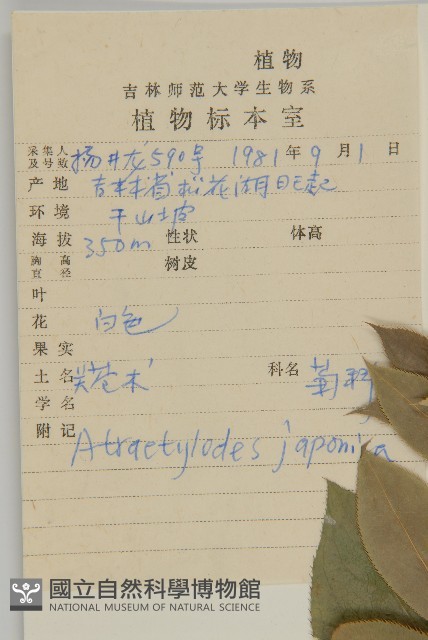 植物
吉林师范大学生物系
植物标本室
采集人及号数 杨井龙590号 1981年9月1日
产地 吉林省松花湖
环境 干山坡
海拔 350m 性状 体高
胸高直径 树皮
叶
花 白色
果实
土名 关苍术 科名 菊科
学名
附记 Atractylodes japonica
國立自然科學博物館
NATIONAL MUSEUM OF NATURAL SCIENCE